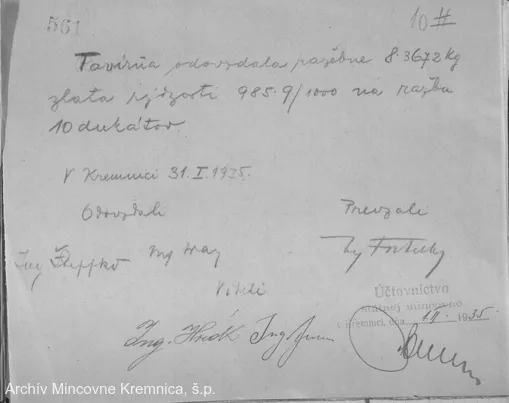 561
10#
Tavírňa odovzdala razebne 8.3672 kg
zlata rýdzosti 985.9/1000 na razbu
10 dukátov.
V Kremnici 31.I.1935.
Odovzdali
Prevzali
Ing
Ing
Ing
Videli
Účtovníctvo
štátnej mincovne
v Kremnici, dňa
1935
Ing.
Ing
Archív Mincovne Kremnica, š.p.